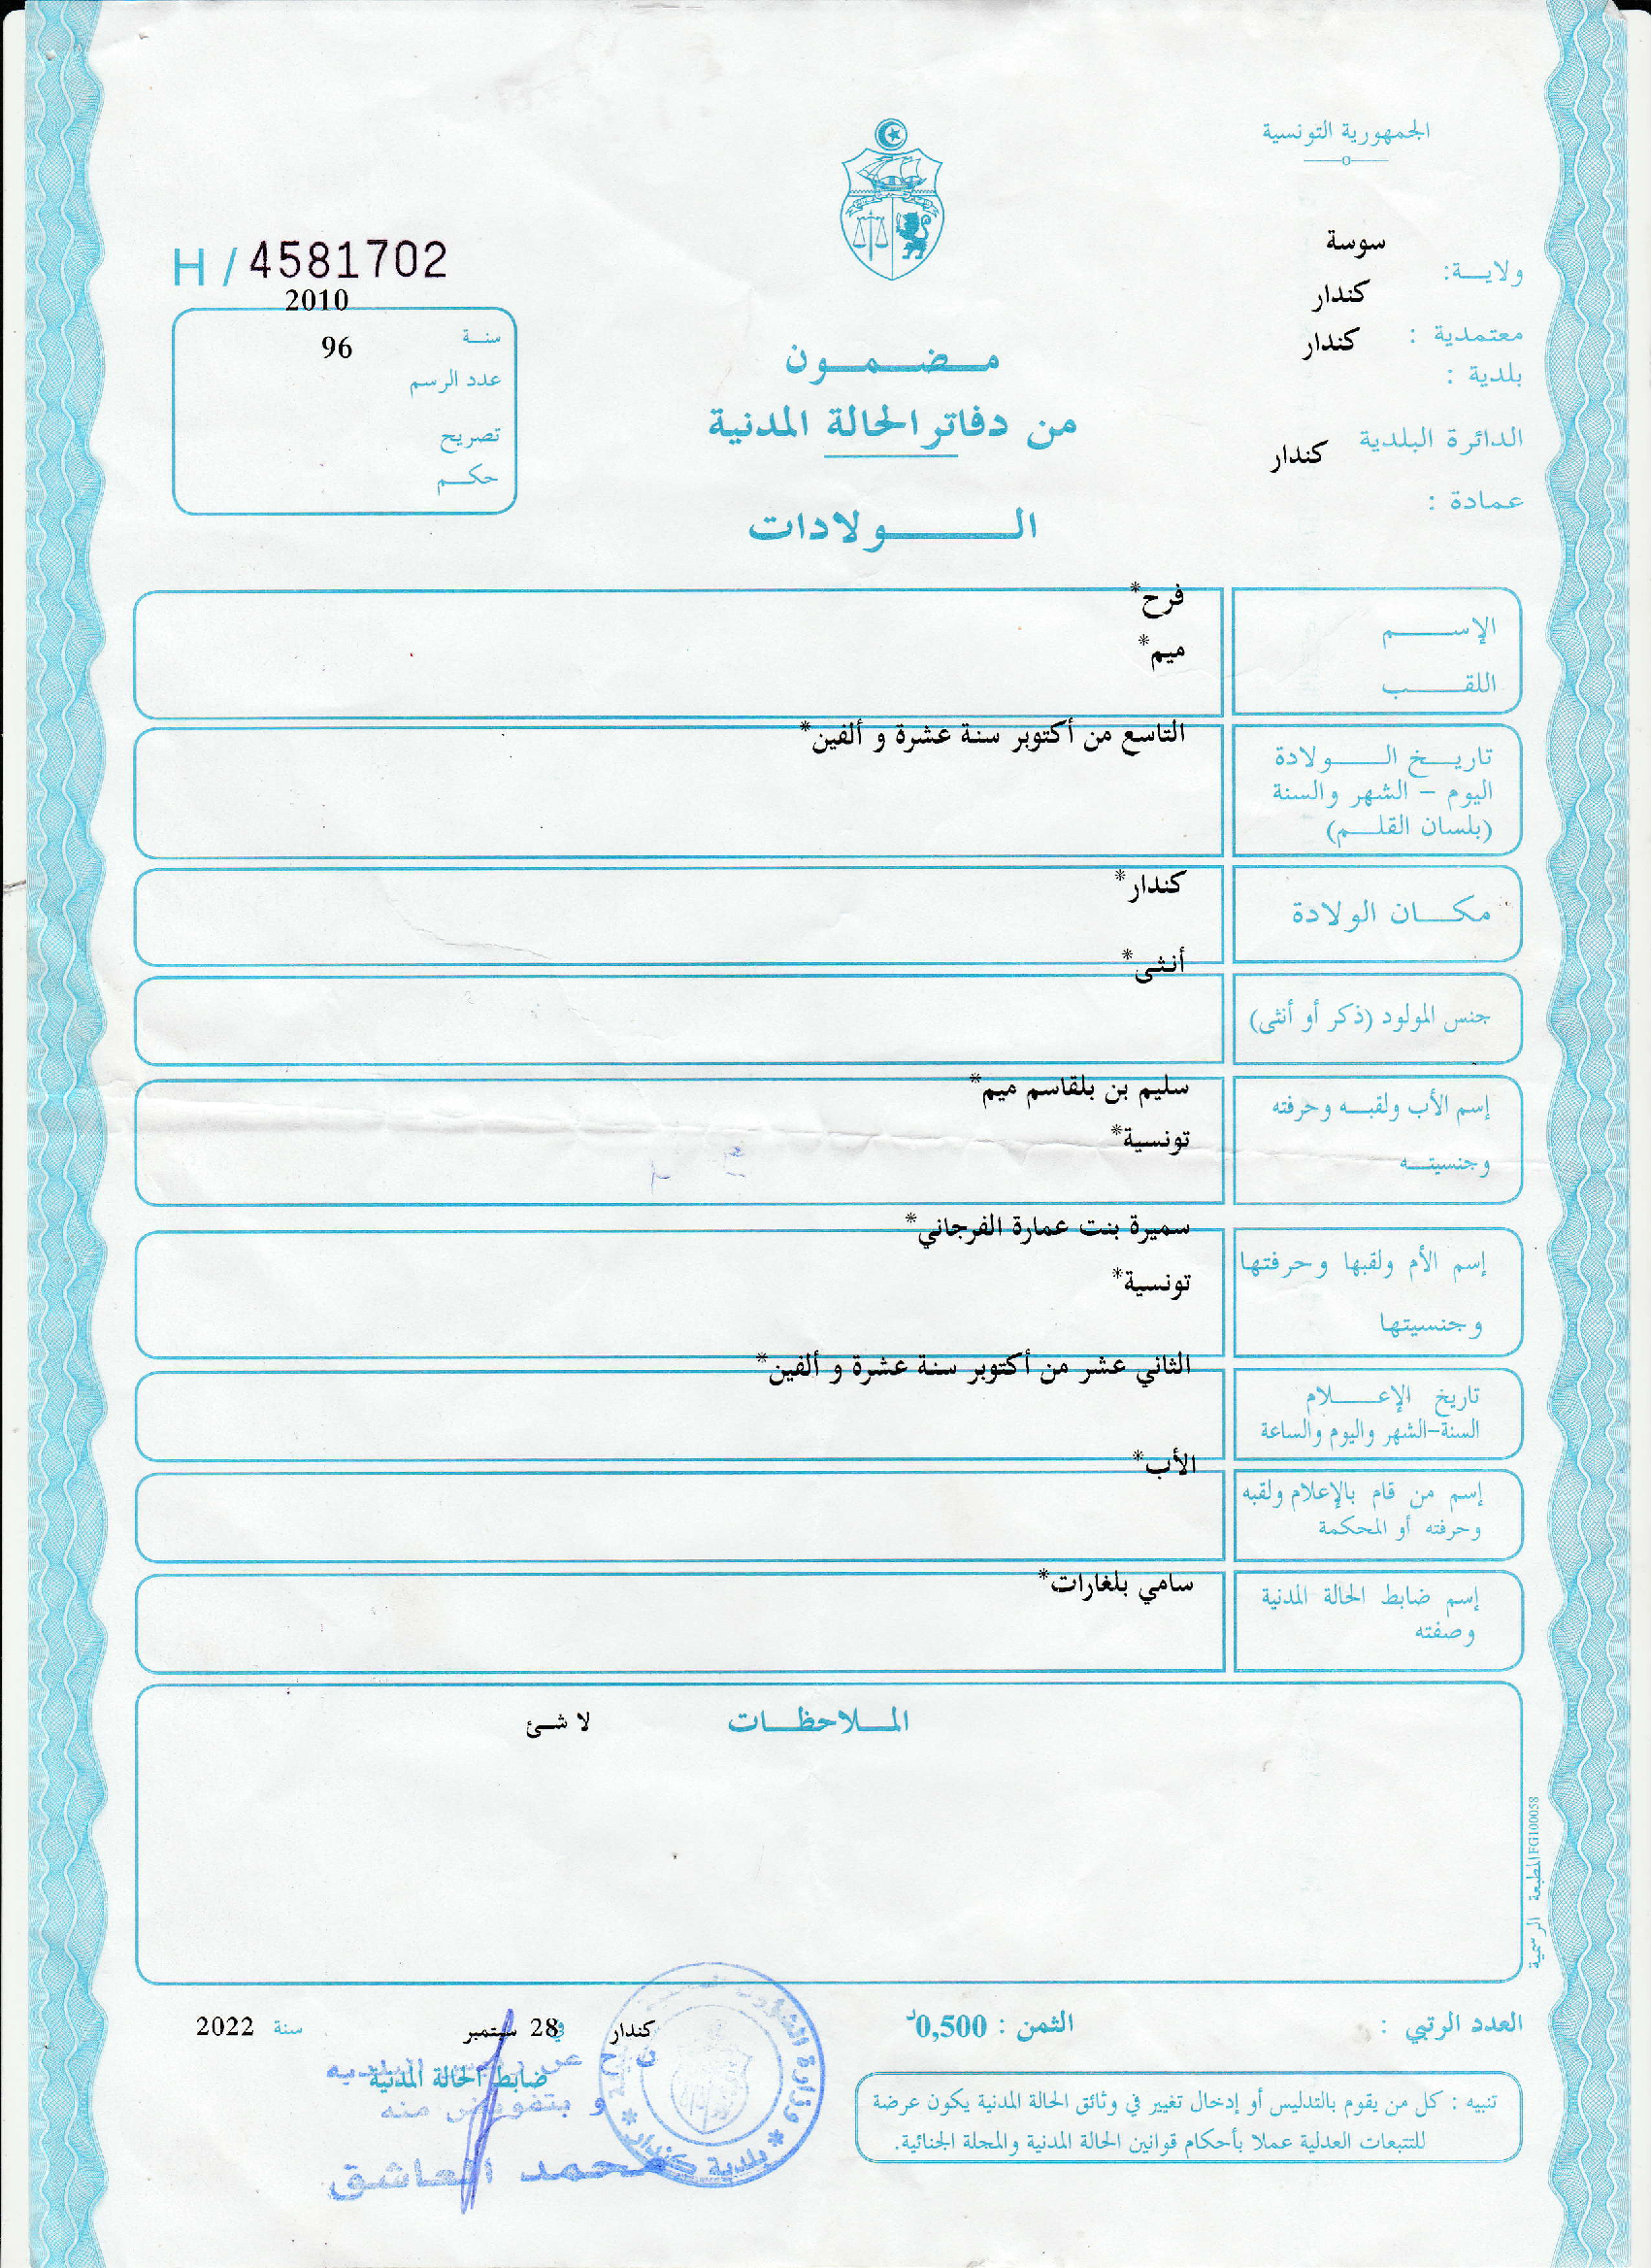 الجمهورية التونسية
سوسة
ولايـة:
كندار
معتمدية :
كندار
بلدية :
الدائرة البلدية
كندار
عمادة :
H / 4581702
2010
سنـة
96
عدد الرسم
تصريح
حكـم
مـضـمـون
من دفاتر الحالة المدنية
الـولادات
فرح*
الإسـم
ميم*
اللقـب
التاسع من أكتوبر سنة عشرة و ألفين*
تاريـخ الـولادة
اليوم - الشهر والسنة
(بلسان القلـم)
كندار*
مكـان الولادة
أنثى*
جنس المولود (ذكر أو أنثى)
سليم بن بلقاسم ميم*
إسم الأب ولقبـه وحرفته
تونسية*
وجنسيتـه
سميرة بنت عمارة الفرجاني*
إسم الأم ولقبها وحرفتها
تونسية*
وجنسيتها
الثاني عشر من أكتوبر سنة عشرة و ألفين*
تاريخ الإعـلام
السنة-الشهر واليوم والساعة
الأب*
إسم من قام بالإعلام ولقبه
وحرفته أو المحكمة
سامي بلغارات*
إسم ضابط الحالة المدنية
وصفته
المـلاحظـات
لا شئ
المطبعة الرسمية FG100058
العدد الرتبي :
الثمن : 0,500د
كندار في 28 سبتمبر سنة 2022
ضابط الحالة المدنية
و بتفويض منه
محمد العاشق
بلدية كندار * وزارة الشؤون
تنبيه : كل من يقوم بالتدليس أو إدخال تغيير في وثائق الحالة المدنية يكون عرضة
للتتبعات العدلية عملا بأحكام قوانين الحالة المدنية والمجلة الجنائية.